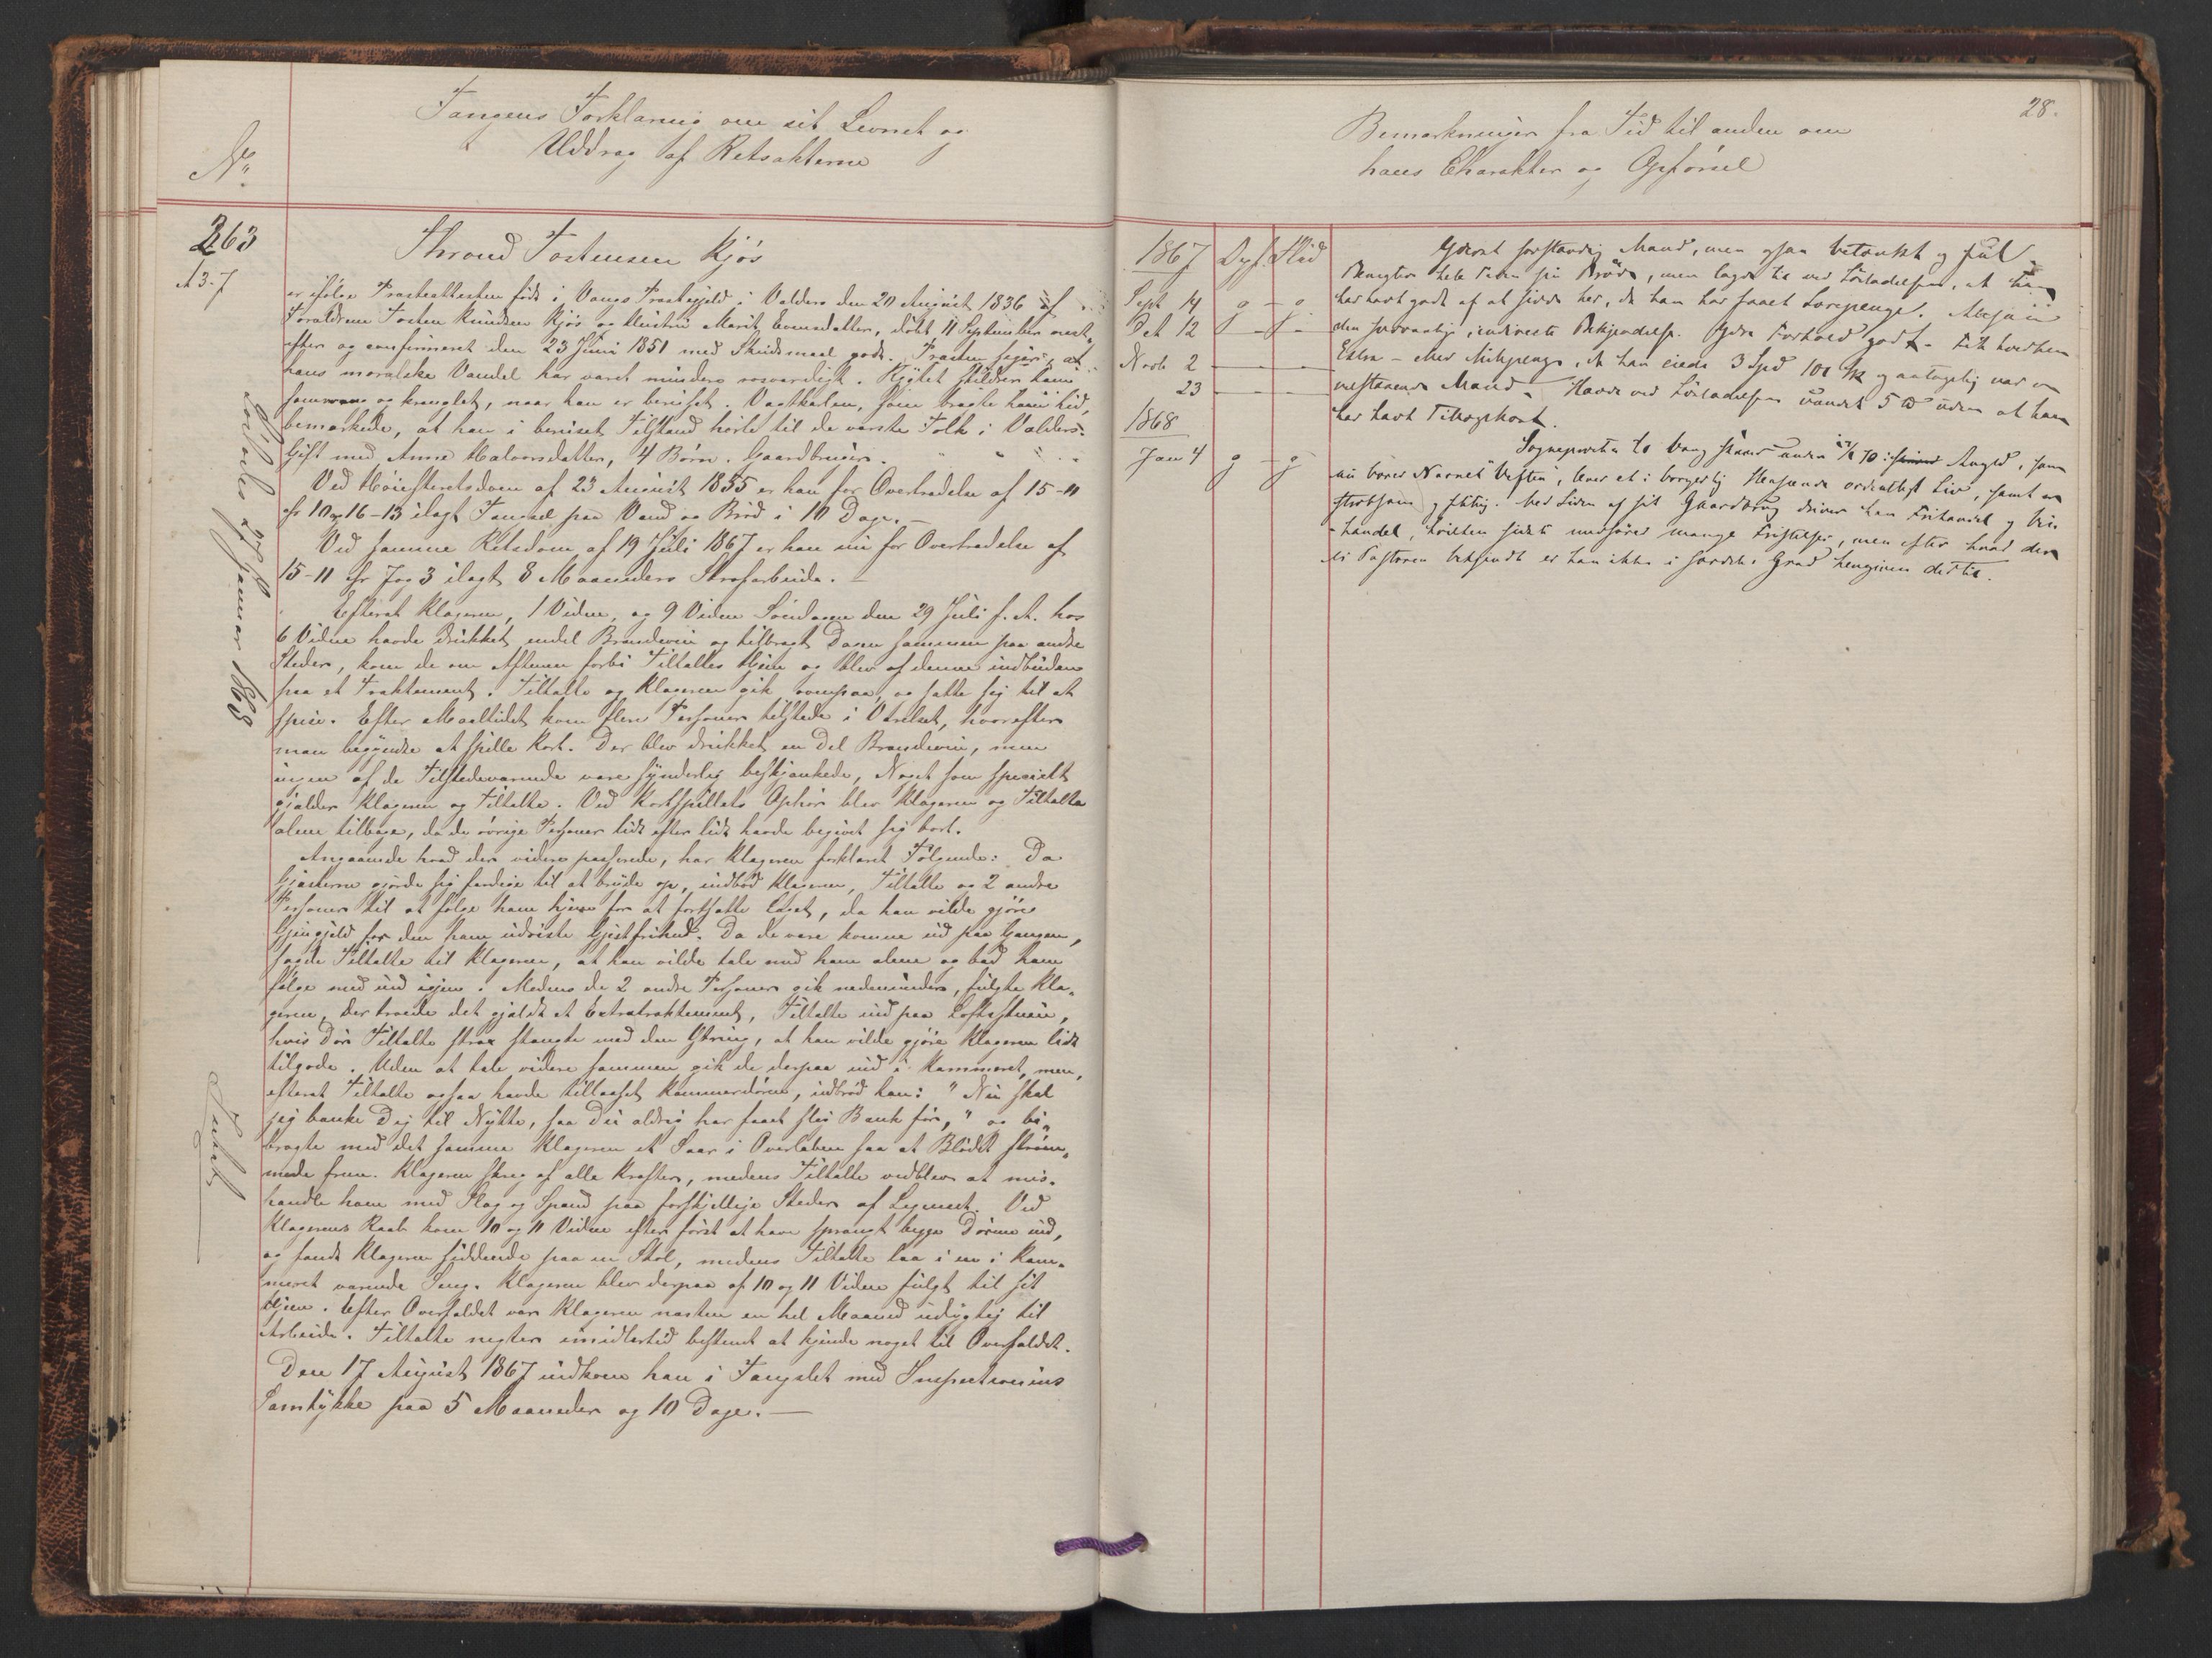 Fangens Forklaring om sit Levnet og
Uddrag af Retsakterne
No.
263
A 3-7
Thrond Tostensen Kjøs
er ifølge Præsteattesten født i Vangs Præstegjeld i Valders den 20 August 1836 af
Forældrene Tosten Knudsen Kjøs og Hustru Marit Evensdatter, døbt 11 September næst-
efter og confirmeret den 23 Juni 1851 med Skudsmaal godt. Præsten siger, at
hans moralske Vandel har været mindre rosværdigt. Rygtet skildrer ham
som og kranglet, naar han er beruset. Vagtkarlen, som bragte ham hid,
bemærkede, at han i beruset Tilstand hørte til de værste Folk i Valders.
Gift med Anne Halvorsdatter, 4 Børn. Gaardbruger.
Ved Høiesteretsdom af 23 August 1855 er han for Overtrædelse af 15-11
cfr 10 og 16-13 ilagt Fængsel paa Vand og Brød i 10 Dage.
Ved samme Retsdom af 19 Juli 1867 er han nu for Overtrædelse af
15-11 cfr 7 og 3 ilagt 8 Maaneders Strafarbeide.
Efterat Klageren, 1 Vidne, og 9 Vidne Søndagen den 29 Juli f. A. hos
6 Vidne havde drukket endel Brændevin og tilbragt Dagen sammen paa andre
Steder, kom de om Aftenen forbi Tiltaltes Huse og blev af denne indbudne
paa et Traktement. Tiltalte og Klageren gik ovenpaa, og satte sig til at
spise. Efter Maaltidet kom flere Personer tilstede i Værelset, hvorefter
man begyndte at spille Kort. Der blev drukket en Del Brændevin, men
ingen af de Tilstedeværende vare synderlig beskjænkede, Noget som specielt
gjælder Klageren og Tiltalte. Ved Kortspillets Ophør blev Klageren og Tiltalte
alene tilbage, da de øvrige Personer lidt efter lidt havde begivet sig bort.
Angaaende hvad der videre passerede, har Klageren forklaret Følgende: Da
Gjæsterne gjorde sig færdige til at bryde op, indbød Klageren, Tiltalte og 2 andre
Personer til at følge ham hjem for at fortsætte Laget, da han vilde gjøre
Gjengjeld for den ham udviste Gjestfrihed. Da de vare komne ud paa Gangen,
sagde Tiltalte til Klageren, at han vilde tale med ham alene og bad ham
følge med ind igjen. Medens de 2 andre Personer gik nedenunder, fulgte Kla-
geren, der troede det gjaldt et Extratraktement, Tiltalte ind paa Loftsstuen,
hvis Dør Tiltalte strax stængte med den Ytring, at han vilde gjøre Klageren lidt
tilgode. Uden at tale videre sammen gik de derpaa ind i Kammeret, men,
efterat Tiltalte ogsaa havde tillaaset Kammerdøren, udbrød han: "Nu skal
jeg banke Dig til Nytte, saa Du aldrig har faaet slig Bank før," og bi-
bragte med det samme Klageren et Saar i Overlæben saa at Blodet strøm-
mede frem. Klageren skreg af alle Kræfter, medens Tiltalte vedblev at mis-
handle ham med Slag og Spænd paa forskjellige Steder af Legemet. Ved
Klagerens Raab kom 10 og 11 Vidne efter først at have sprængt begge Dørene ind,
og fandt Klageren siddende paa en Stol, medens Tiltalte laa i en i Kam-
meret værende Seng. Klageren blev derpaa af 10 og 11 Vidne fulgt til sit
Hjem. Efter Overfaldet var Klageren næsten en hel Maaned udygtig til
Arbeide. Tiltalte negter imidlertid bestemt at kjende noget til Overfaldet.
Den 17 August 1867 indkom han i Fangslet med Inspectionens
Samtykke paa 5 Maaneder og 10 Dage.
Løslades 27 Januar 1868
28.
Bemærkninger fra Tid til anden om
hans Charakter og Opførsel
1867 Opf. Flid
Sept 14 g - g
Oct 12 g - g
Novb 2
23
1868
Jan 4 g - g
Yderst forstandig Mand, men ogsaa betænkt og ful
Nægter hele Tiden sin Brøde, men lagde til ved Løsladelsen, at han
har havt godt af at sidde her, da han har faaet Lærepenge. Altsaa
den sædvanlige indirecte Bekjendelse. Ydre Forhold godt. Fik hverken
Extra- eller Nistepenge, da han eiede 3 Spd 101 sk og antagelig var en
velstaaende Mand. Havde ved Løsladelsen vundet 5 ℔ uden at have
har havt Tillægskost.
Sognepresten til Vang skriver under 70: Angld, som
nu bærer Navnet Veften, lever et i borgerlig Henseende ordentligt Liv, samt er
stræbsom og flittig. Ved Siden af sit Gaardbrug driver han Frihandel og
handel, hvilken sidste medfører mange Fristelser, men efter hvad der
er Pastoren bekjendt er han ikke i særdeles Grad hengiven dertil.